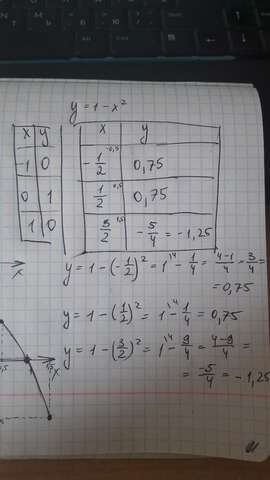 y = 1 - x²
x y
-1 0
0 1
1 0
x y
-1/2 -0,5 0,75
1/2 0,5 0,75
3/2 1,5 -5/4 = -1,25
y = 1 - (-1/2)² = 1^\4 - 1/4 = (4-1)/4 = 3/4 =
= 0,75
y = 1 - (1/2)² = 1^\4 - 1/4 = 0,75
y = 1 - (3/2)² = 1^\4 - 9/4 = (4-9)/4 =
= -5/4 = -1,25
x
x
1,5